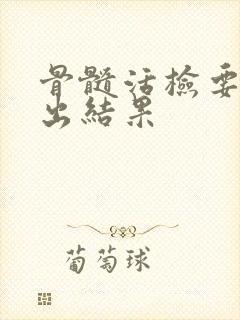 骨髓活檢要
出結果
葡萄球